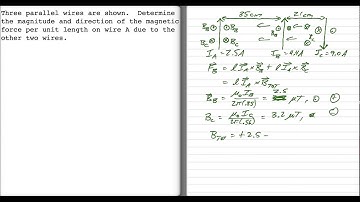 Three parallel wires are shown. Determine
the magnitude and direction of the magnetic
force per unit length on wire A due to the
other two wires.
35cm 21cm
I_A = 7.5A I_B = 4.4A I_C = 9.0A
F_B = l I_A × B_B + l I_A × B_C
= l I_A × B_TOT
B_B = μ₀ I_B / 2π(.35) = 2.5 μT,
B_C = μ₀ I_C / 2π(.56) = 3.2 μT,
B_TOT = +2.5 -